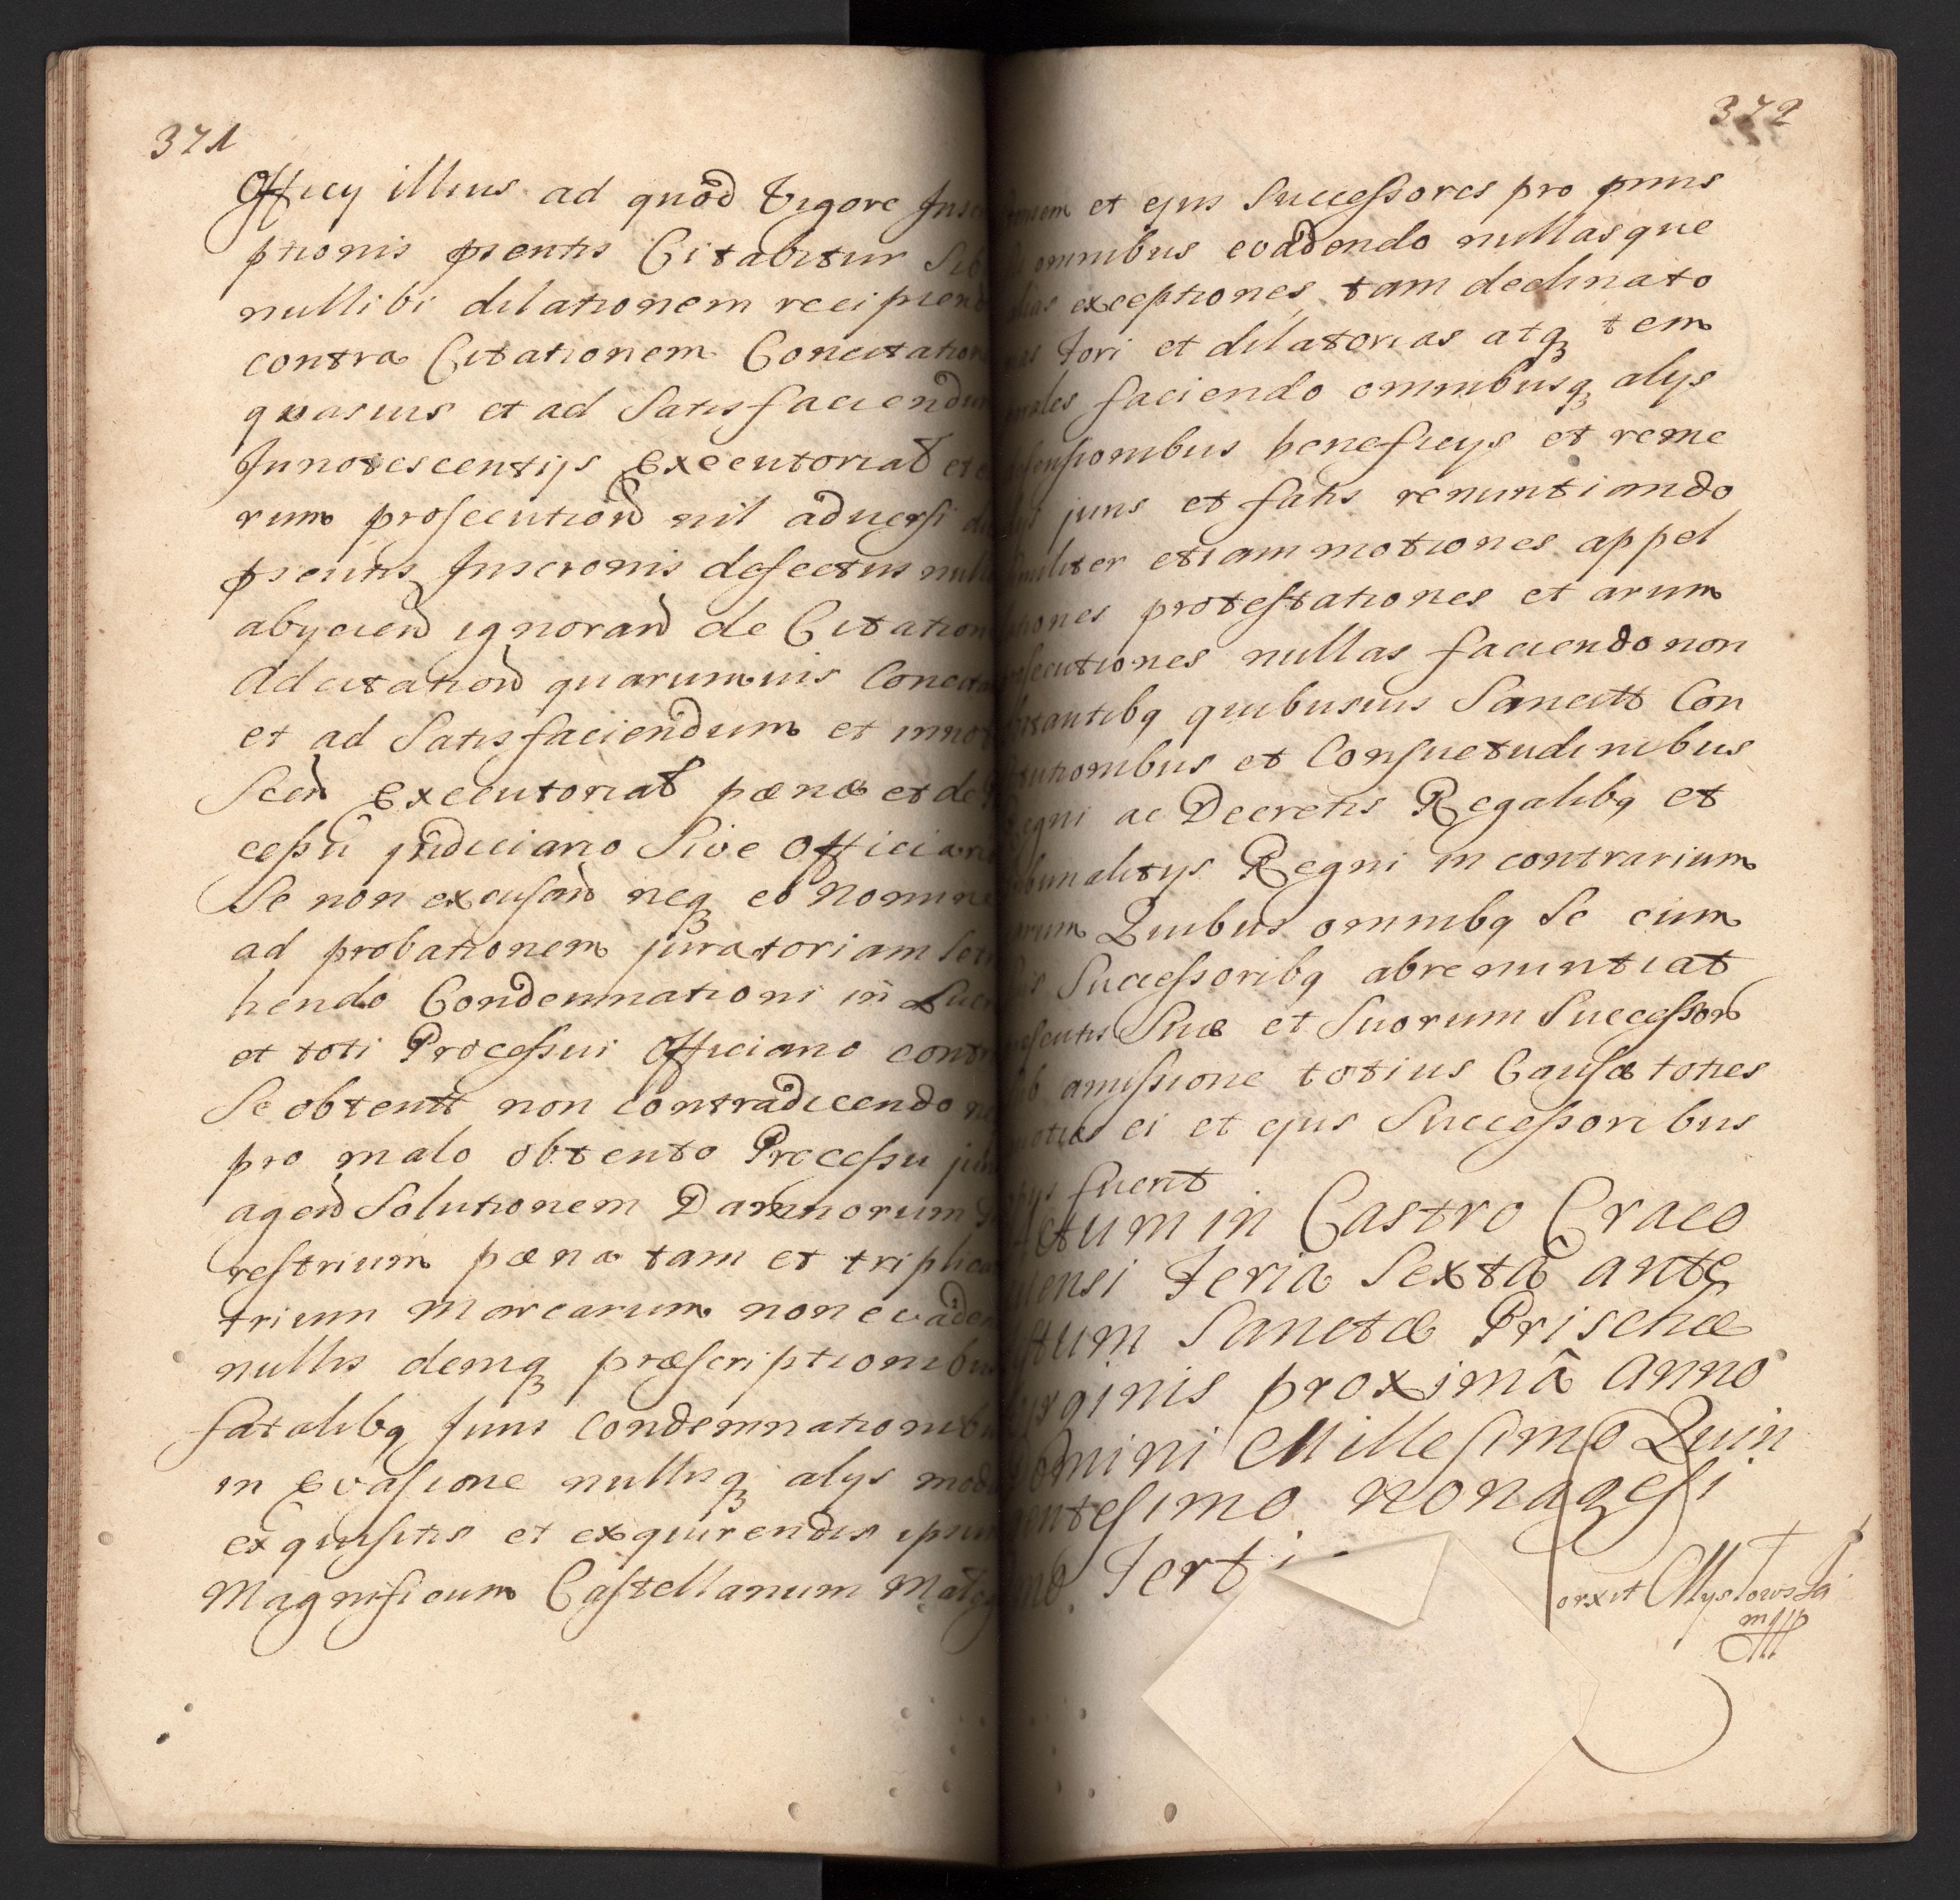 371
Officy illius ad quod Vigore Inscri
ptionis pñentis Citabitur Sib
nullibi dilationem recipiend
contra Citationem Concitation
quasuis et ad Satisfaciendum
Innotescentijs Executorial et e
rum prosecutiond nil aduersi
pñentis Inscronis defectus null
abyciend ignorand de Citation
Adcitationd quarumuis Concita
et ad Satisfaciendum et innot
Scend Executorial pæna et de
cessu judiciario Sive Officiar
Se non excusand neq eo nomine
ad probationem juratoriam
hendo Condemnationi in Lucr
et toti Processui Officiario contr
Se obtentt non contradicendo
pro malo obtento Processu
agend Solutionem Damnorum
restrium pæna tam et triplica
trium Marcarum non evaden
nullis demq præscriptionibus
fatalibq Juris condemnationibu
in Evasione nullisq alys mod
exquisitis et exquirendis ipsum
Magnificum Castellanum
372
et ejus Successores pro prmis
omnibus evadendo nullasque
alias exceptiones tam declinato
rias Fori et dilatorias atq tem
porales faciendo omnibusq alys
defensionibus beneficys et reme
dys juris et fatis renuntiando
similiter etiam motiones appel
lationes protestationes et arum
prosecutiones nullas faciendo non
obstantibq quibusuis Sancitt Con
stitutionibus et Consuetudinibus
Regni ac Decretis Regalibq et
Tribunalitys Regni in contrarium
Quibus omnibq Se cum
suis Successoribq abrenuntiat
Suæ et Suorum Successord
sub amissione totius Causæ toties
quoties ei et ejus Successoribus
opus fuerit
Actum in Castro Craco
uiensi Feria Sexta ante
festum Sanctæ Prischæ
Virginis proximâ Anno
Domini Millesimo Quin
gentesimo nonagesi
mo Terti
orxit Mystowski
mpp